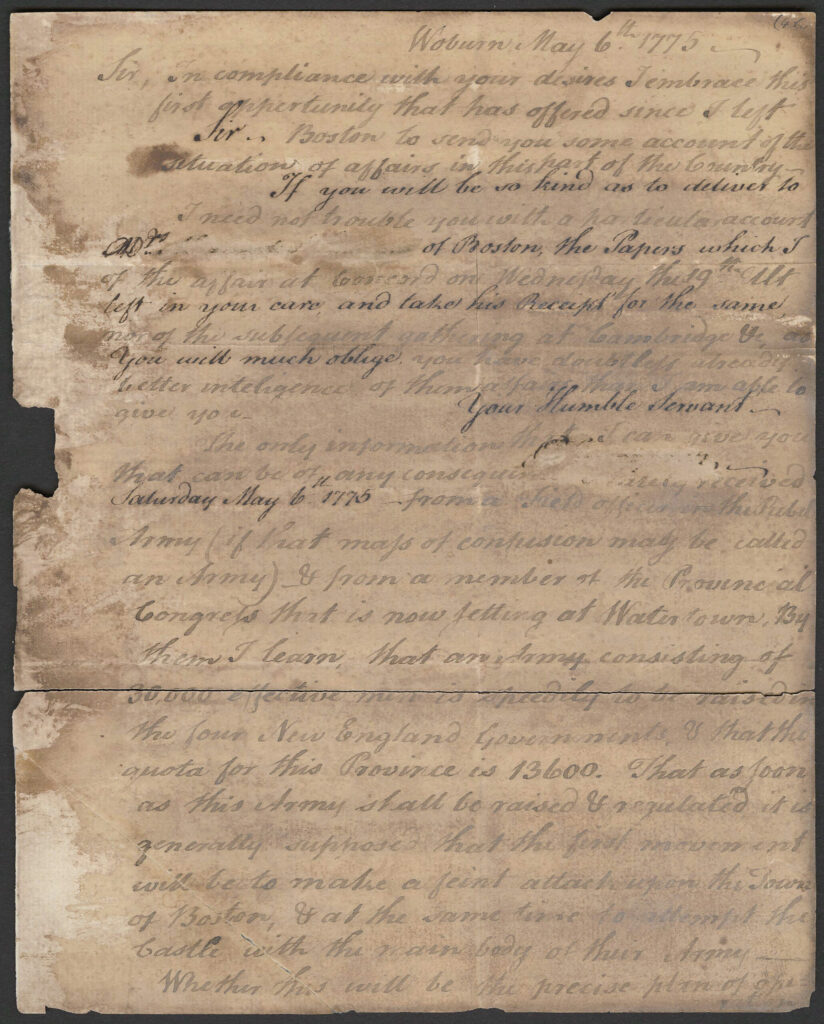 Woburn May 6th 1775
Sir, In compliance with your desires I embrace this
first opportunity that has offered since I left
Sir Boston to send you some account of the
situation of affairs in this part of the Country
If you will be so kind as to deliver to
I need not trouble you with a particular account
of Boston, the Papers which I
of the affair at Concord on Wednesday the 19th Ult
left in your care, and take his Receipt for the same,
nor of the subsequent gathering at Cambridge &c, as
You will much oblige you have doubtless already
better inteligence of them affairs than I am able to
give you
Your Humble Servant
The only information that I can give you
that can be of any consequence received
Saturday May 6th 1775 from a Field officer in the Rebel
Army (if that mass of confusion may be called
an Army) & from a member of the Provincial
Congress that is now setting at Watertown. By
them I learn, that an Army consisting of
30,000 effective men is speedily to be raised in
the four New England Governments, & that the
quota for this Province is 13600. That as soon
as this Army shall be raised & regulated it is
generally supposed that the first movement
will be to make a feint attack upon the Town
of Boston, & at the same time to attempt the
Castle with the main body of their Army
Whether this will be the precise plan of ope-